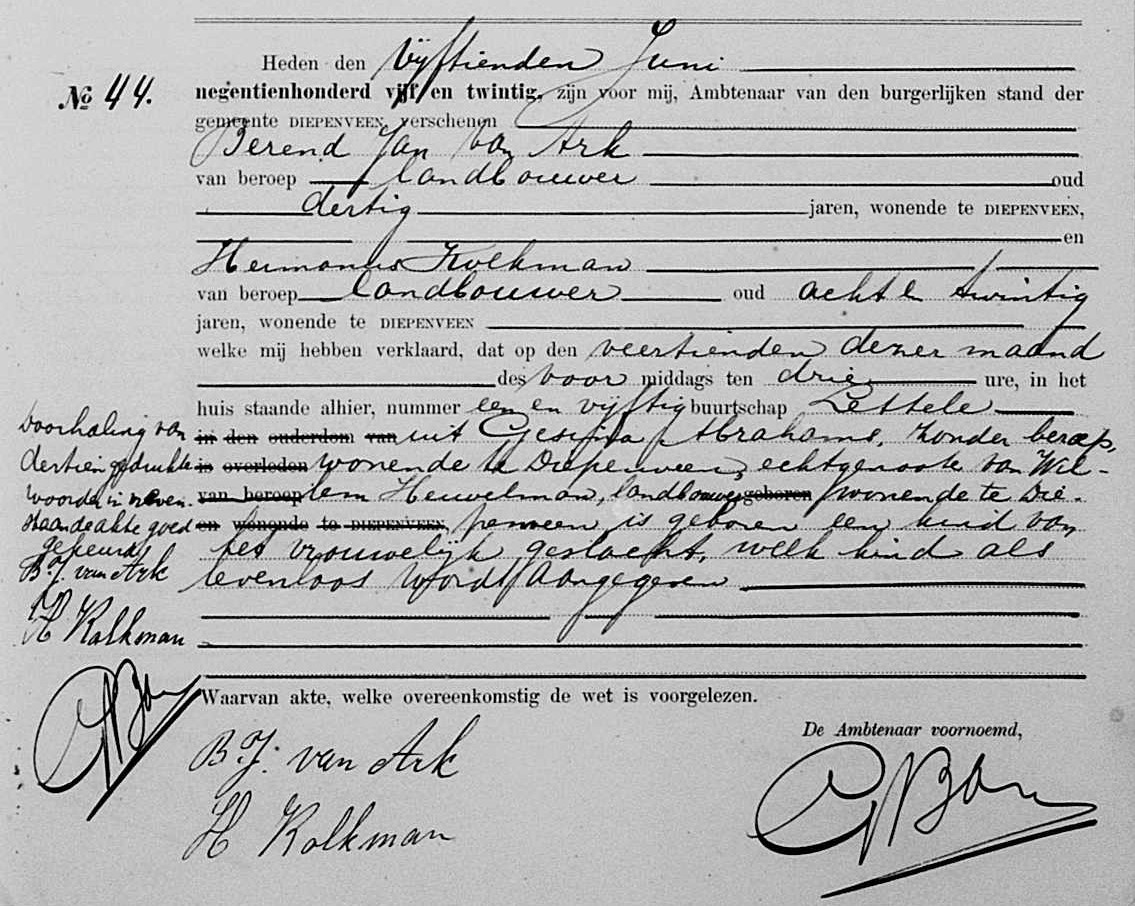 Heden den vijftienden Juni
No 44.
negentienhonderd vijf en twintig, zijn voor mij, Ambtenaar van den burgerlijken stand der
gemeente DIEPENVEEN, verschenen
Berend Jan van Ark
van beroep landbouwer oud
dertig jaren, wonende te DIEPENVEEN,
en
Hermanus Kolkman
van beroep landbouwer oud acht en twintig
jaren, wonende te DIEPENVEEN
welke mij hebben verklaard, dat op den veertienden dezer maand
des voor middags ten drie ure, in het
huis staande alhier, nummer een en vijftig buurtschap Lettele
in den ouderdom van uit Gesina Abrahams, zonder beroep,
is overleden wonende te Diepenveen, echtgenoote van Wil-
van beroep lem Heuvelman, landbouwer geboren wonende te Die-
en wonende te DIEPENVEEN, penveen is geboren een kind van
het vrouwelijk geslacht, welk kind als
levenloos wordt aangegeven
Doorhaling van
dertien gedrukte
woorden in neven-
staande akte goed
gekeurd
B.J. van Ark
H Kolkman
Waarvan akte, welke overeenkomstig de wet is voorgelezen.
De Ambtenaar voornoemd,
B.J. van Ark
H Kolkman